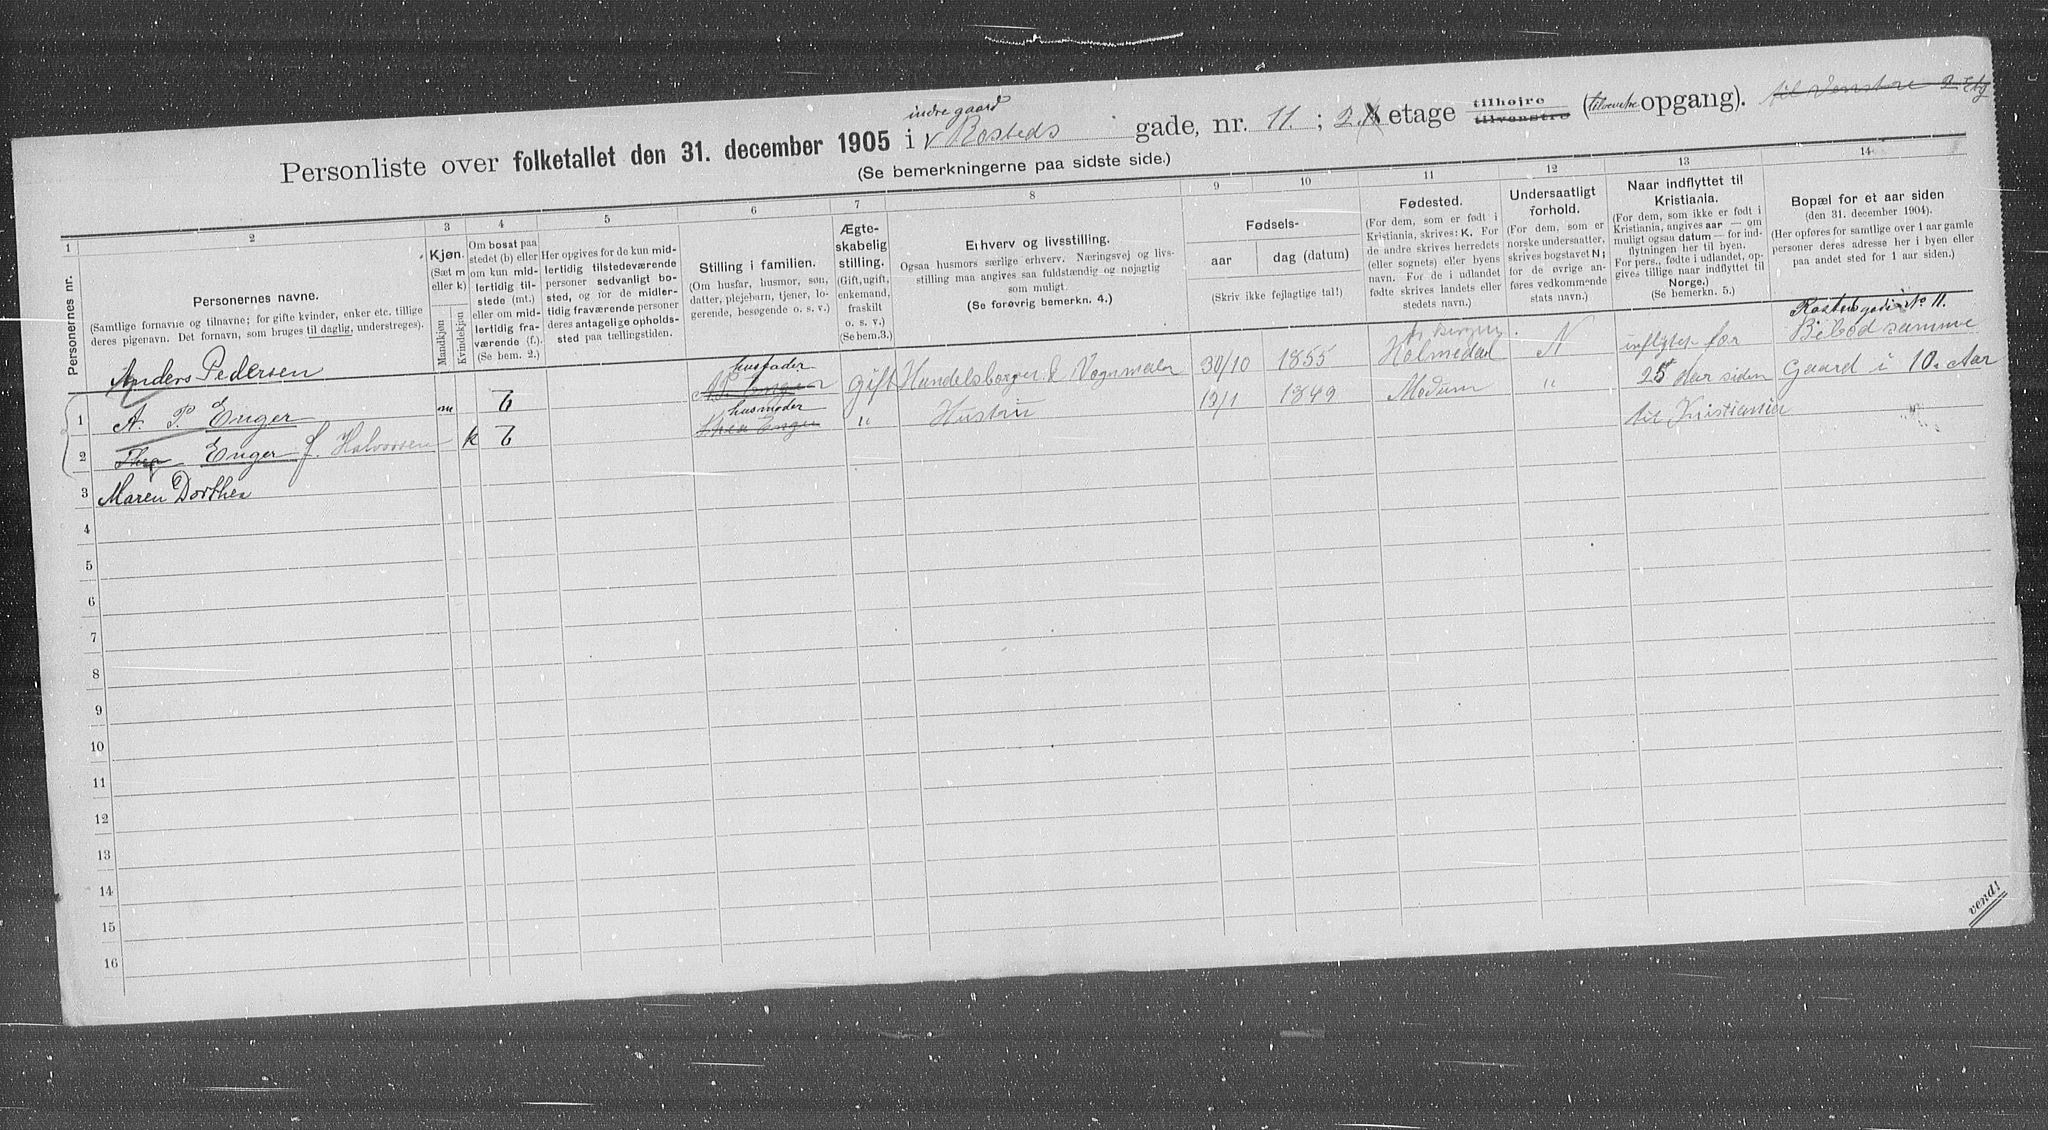 indre gaard
Personliste over folketallet den 31. december 1905 i Rosteds gade, nr. 11. ; 2 etage tilhøjre tilvenstre (tilvenstre opgang). til Venstre 2 Etg
(Se bemerkningerne paa sidste side.)
1 2 3 4 5 6 7 8 9 10 11 12 13 14
Personernes nr.
Personernes navne.
(Samtlige fornavne og tilnavne; for gifte kvinder, enker etc. tillige
deres pigenavn. Det fornavn, som bruges til daglig, understreges).
Kjøn.
(Sæt m
eller k)
Mandkjøn
Kvindekjøn
Om bosat paa
stedet (b) eller
om kun mid-
lertidig tils-
stede (mt.)
eller om mid-
lertidig fra-
værende (f.).
(Se bem. 2.)
Her opgives for de kun mid-
lertidig tilstedeværende
personer sedvanlig bo-
sted, og for de midler-
tidig fraværende personer
deres antagelige opholds-
sted paa tællingstiden.
Stilling i familien.
(Om husfar, husmor, søn,
datter, plejebarn, tjener, lo-
gerende, besøgende o. s. v.)
Ægte-
skabelig
stilling.
(Gift, ugift,
enkemand,
fraskilt
o. s. v.)
(Se bem. 3.)
Erhverv og livsstilling.
Ogsaa husmors særlige erhverv. Næringsvej og livs-
stilling maa angives saa fuldstændig og nøjagtig
som muligt.
(Se forøvrig bemerkn. 4.)
Fødsels-
aar dag (datum)
(Skriv ikke fejlagtige tal!)
Fødested.
(For dem, som er født i
Kristiania, skrives: K. For
de andre skrives herredets
(eller sognets) eller byens
navn. For de i udlandet
fødte skrives landets eller
stedets navn.)
Undersaatligt
forhold.
(For dem, som er
norske undersaatter,
skrives bogstavet N;
for de øvrige an-
føres vedkommende
stats navn.)
Naar indflyttet til
Kristiania.
(For dem, som ikke er født i
Kristiania, angives aar — om
muligt ogsaa datum — for ind-
flytningen her til byen.
For pers., fødte i udlandet, op-
gives tillige naar indflyttet til
Norge.)
(Se bemerkn. 5.)
Bopæl for et aar siden
(den 31. december 1904).
(Her opføres for samtlige over 1 aar gamle
personer deres adresse her i byen eller
paa andet sted for 1 aar siden.)
Rostedsgade No 11.
Anders Pedersen
husfader
1 A. P. Enger m b gift Handelsborger & Vognmaler 30/10 1855 Holmedal N inflytet for Bebod samme
husmoder
2 Thea Enger f. Halvorsen k b Thea Enger " Hustru 19/1 1849 Modum " 25 Aar siden Gaard i 10. Aar
til Kristiania
3 Maren Dorthea
4
5
6
7
8
9
10
11
12
13
14
15
16
vend!